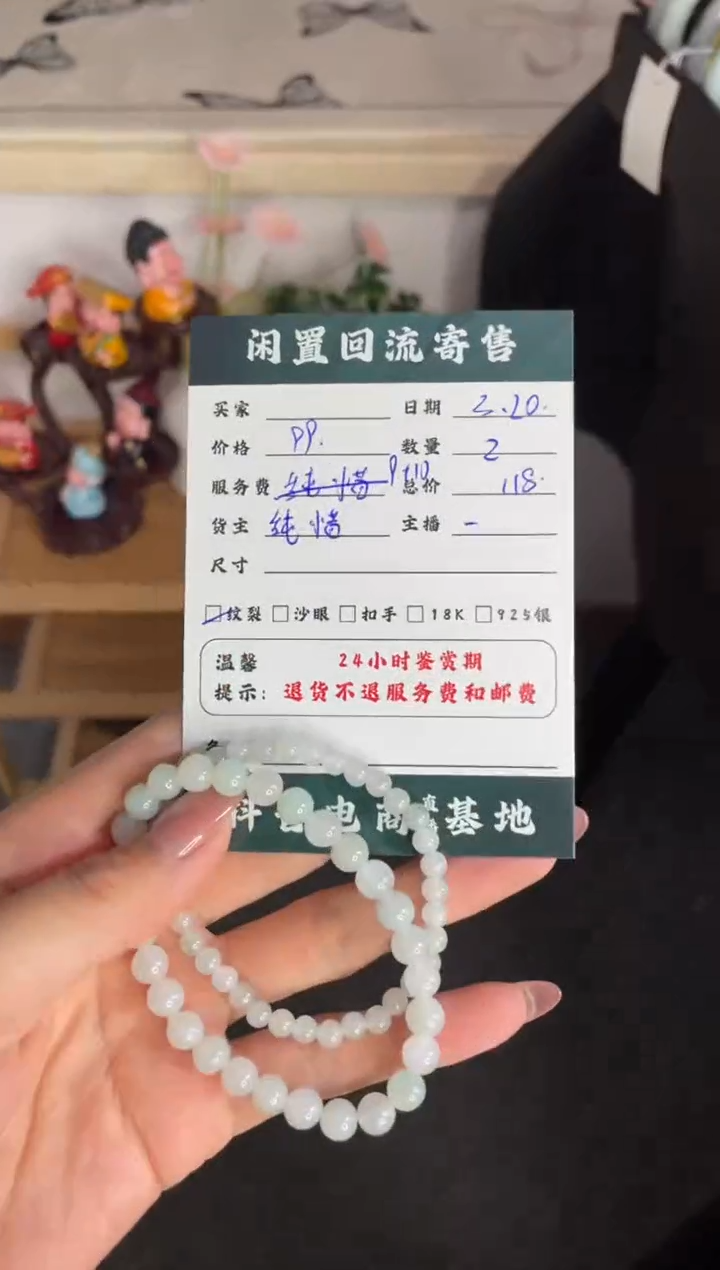 闲置回流寄售
买家 日期 2.20.
价格 PP. 数量 2
服务费 纯惜 P110 总价 118.
货主 纯惜 主播 -
尺寸
纹裂 沙眼 扣手 18K 925银
温馨 24小时鉴赏期
提示: 退货不退服务费和邮费
抖音电商直播基地